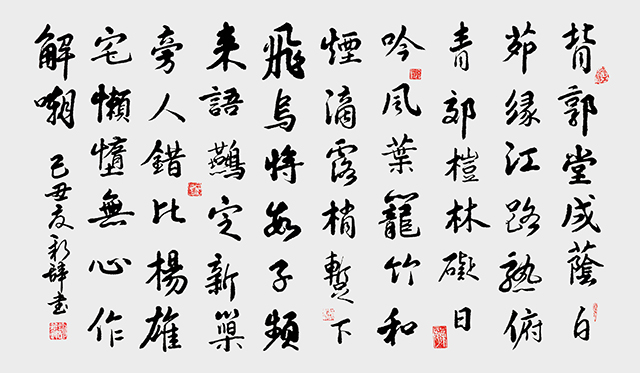 背郭堂成蔭白
茆緣江路熟俯
青郊榿林礙日
吟風葉籠竹和
煙滴露梢暫下
飛烏將數子頻
来語鷰定新巢
旁人錯比楊雄
宅懶惰無心作
解嘲
己丑夏書